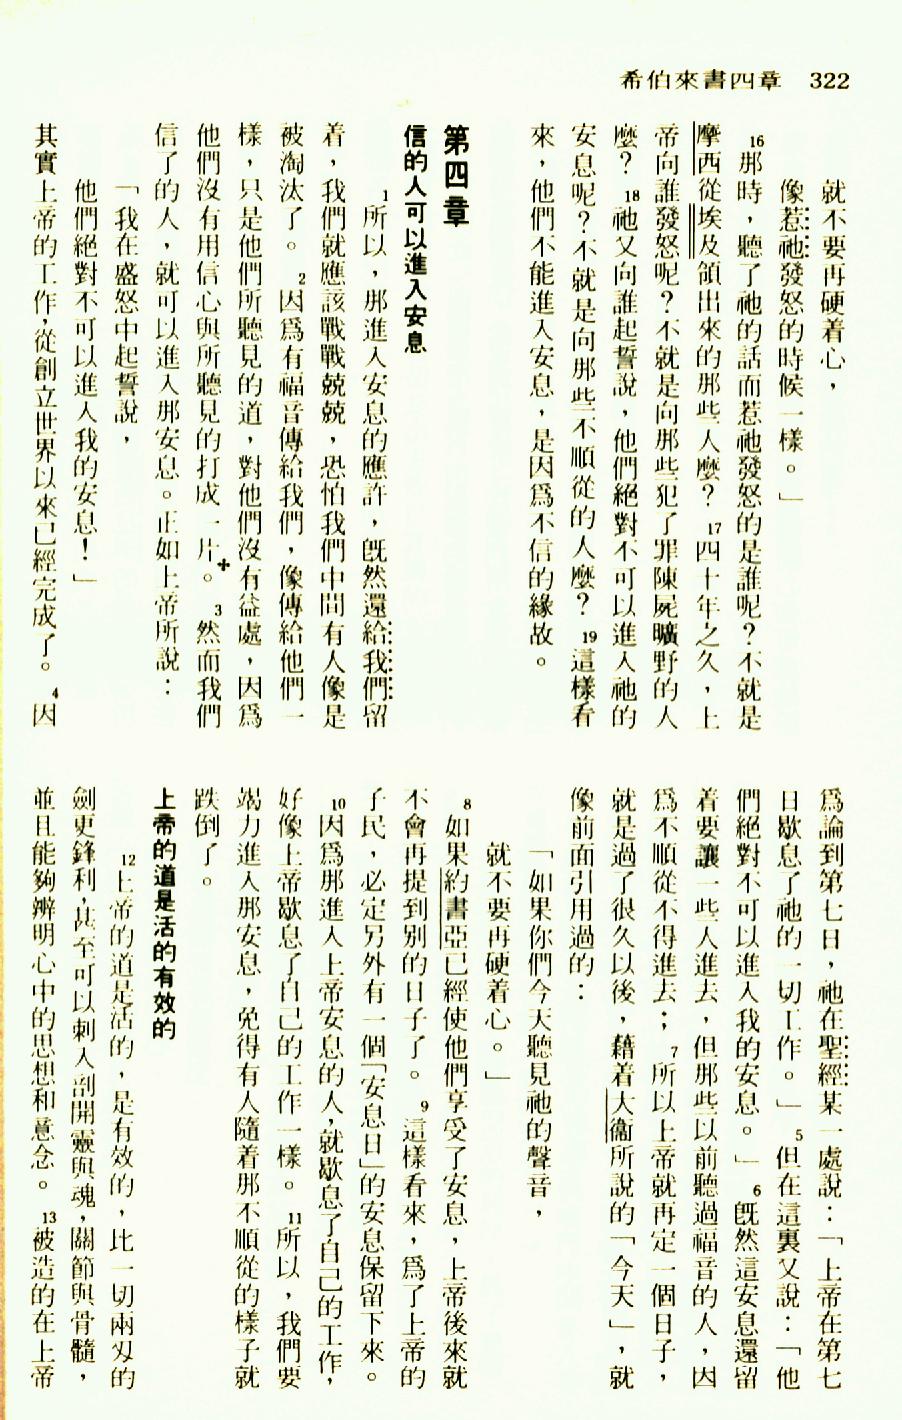 希伯來書四章　322
就不要再硬着心，
像惹祂發怒的時候一樣。」
16那時，聽了祂的話而惹祂發怒的是誰呢？不就是
摩西從埃及領出來的那些人麼？17四十年之久，上
帝向誰發怒呢？不就是向那些犯了罪陳屍曠野的人
麼？18祂又向誰起誓說，他們絕對不可以進入祂的
安息呢？不就是向那些不順從的人麼？19這樣看
來，他們不能進入安息，是因爲不信的緣故。
第四章
信的人可以進入安息
1所以，那進入安息的應許，旣然還給我們留
着，我們就應該戰戰兢兢，恐怕我們中間有人像是
被淘汰了。2因爲有福音傳給我們，像傳給他們一
樣，只是他們所聽見的道，對他們沒有益處，因爲
他們沒有用信心與所聽見的打成一片✢。3然而我們
信了的人，就可以進入那安息。正如上帝所說：
「我在盛怒中起誓說，
他們絕對不可以進入我的安息！」
其實上帝的工作，從創立世界以來已經完成了。4因
爲論到第七日，祂在聖經某一處說：「上帝在第七
日歇息了祂的一切工作。」5但在這裏又說：「他
們絕對不可以進入我的安息。」6旣然這安息還留
着要讓一些人進去，但那些以前聽過福音的人，因
爲不順從不得進去；7所以上帝就再定一個日子，
就是過了很久以後，藉着大衞所說的「今天」，就
像前面引用過的：
「如果你們今天聽見祂的聲音，
就不要再硬着心。」
8如果約書亞已經使他們享受了安息，上帝後來就
不會再提到別的日子了。9這樣看來，爲了上帝的
子民，必定另外有一個「安息日」的安息保留下來。
10因爲那進入上帝安息的人，就歇息了自己的工作，
好像上帝歇息了自己的工作一樣。11所以，我們要
竭力進入那安息，免得有人隨着那不順從的樣子就
跌倒了。
上帝的道是活的有效的
12上帝的道是活的，是有效的，比一切兩刄的
劍更鋒利，甚至可以刺入剖開靈與魂，關節與骨髓，
並且能夠辨明心中的思想和意念。13被造的在上帝